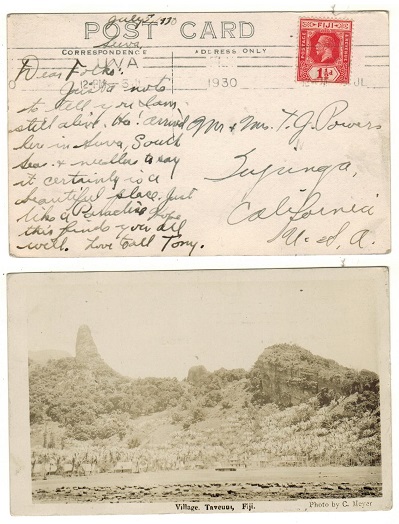 July 7, 1930
Suva
POST CARD
CORRESPONDENCE
ADDRESS ONLY
1930
JUL
FIJI
POSTAGE
REVENUE
1½d
Dear Folks:
Just a note
to tell you I am
still alive.
arrived
here in Suva, South
Seas. & needless to say
it certainly is a
beautiful place. Just
like a Paradise. Hope
this finds you all
well. Love to all Tony.
Mr & Mrs. T. J. Powers
Tujunga,
California
U.S.A.
Village.
Fiji.
Photo by C. Meyer